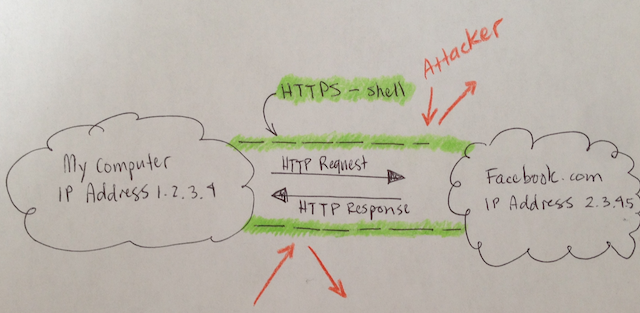 Attacker
HTTPS - shell
My Computer
IP Address 1.2.3.4
HTTP Request
HTTP Response
Facebook.com
IP Address 2.3.45